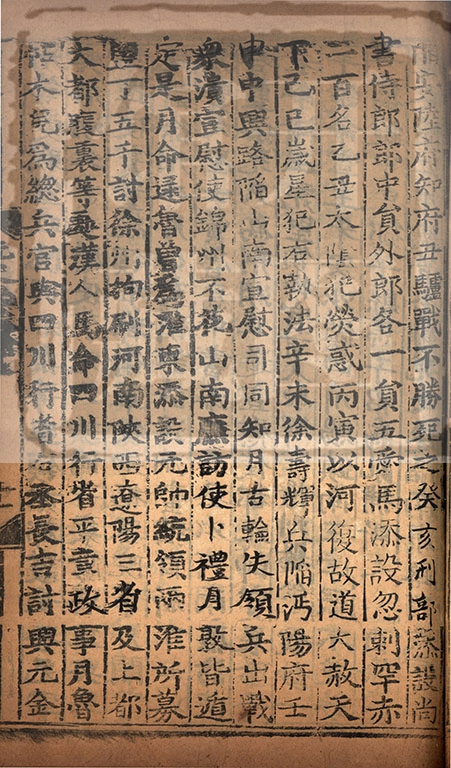 陷安陸府知府丑驢戰不勝死之癸亥刑部添設尚
書侍郎郎中貟外郎各一貟五愛馬添設忽剌罕赤
二百名乙丑太陰犯熒惑丙寅以河復故道大赦天
下己巳歲星犯右執法辛未徐壽輝兵陷沔陽府壬
申中興路陷山南宣慰司同知月古輪失領兵出戰
衆潰宣慰使錦州不花山南廉訪使卜禮月敦皆遁
走是月命逯魯曾爲淮東添設元帥統領兩淮所募
鹽丁五千討徐州拘刷河南陝西遼陽三省及上都
大都腹裏等處漢人馬命四川行省平章政事月魯
帖木兒爲總兵官與四川行省右丞長吉討興元金